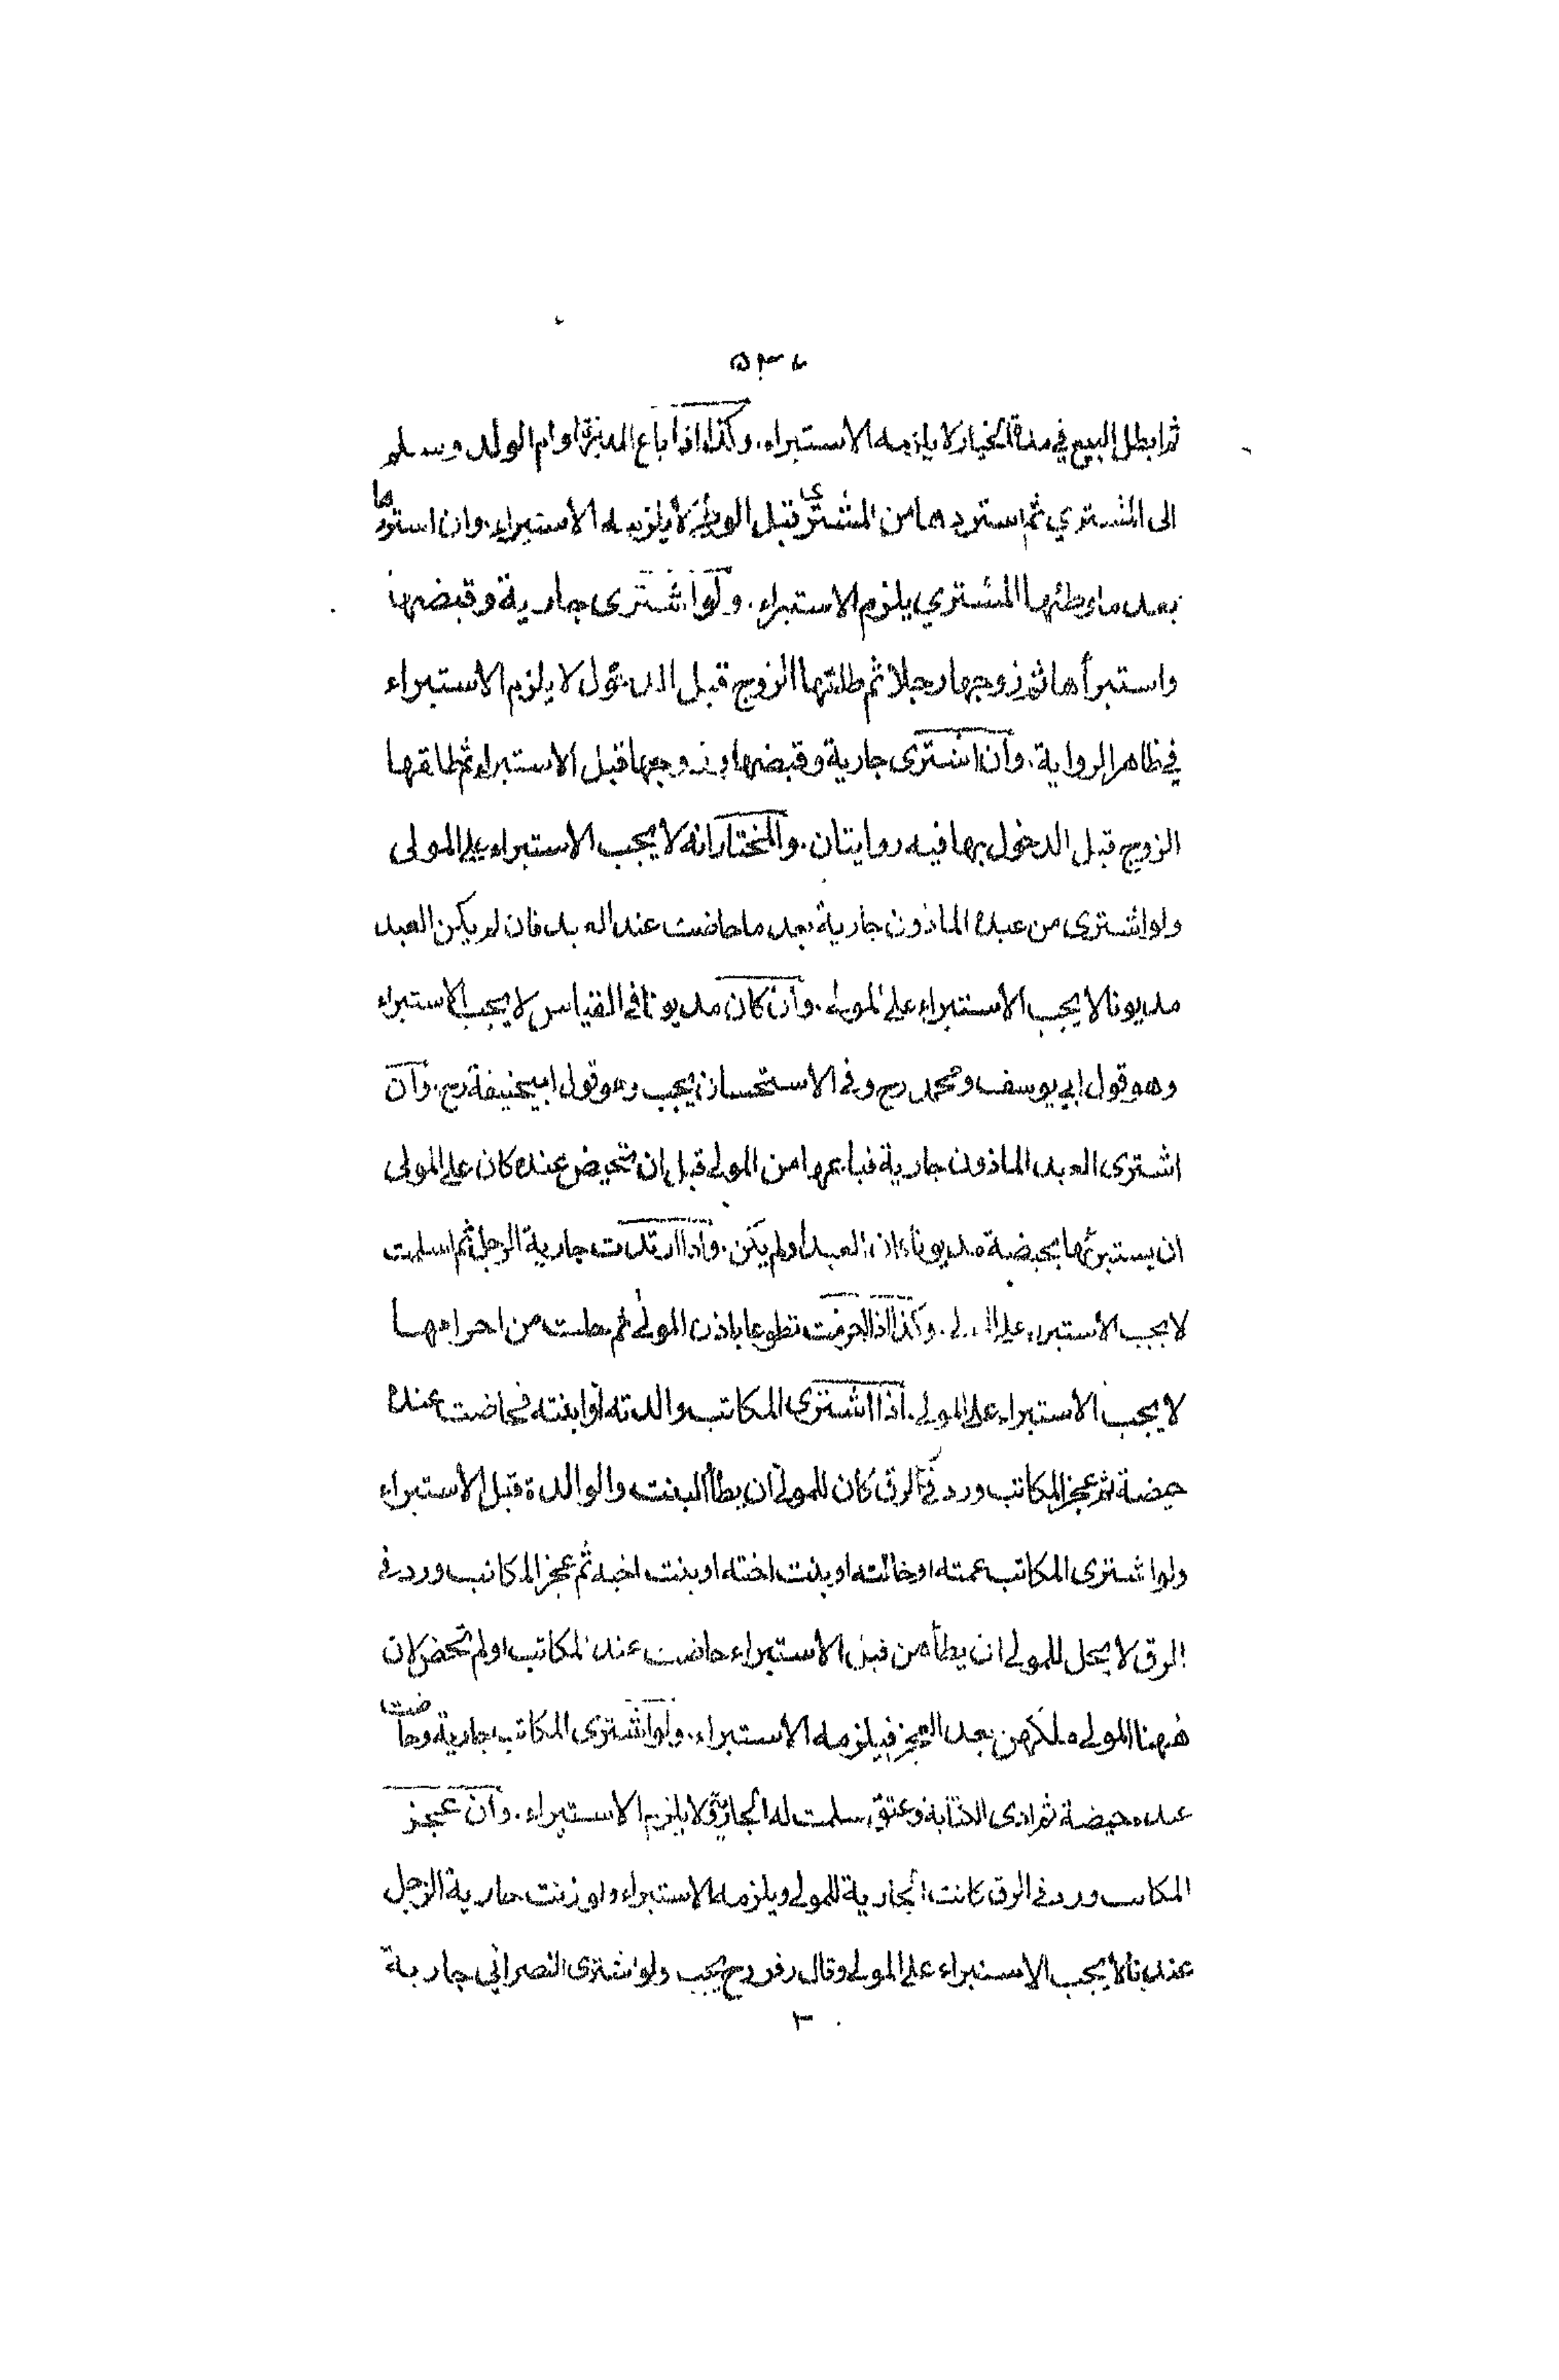 ثم ابطل البيع في مدة الخيار لا يلزمه الاستبراء. وكذا اذا باع المدبرة او ام الولد وسلم
الى المشتري ثم استردها من المشتري قبل الوطئ لا يلزمه الاستبراء. وان استردها
بعد ما وطئها المشتري يلزم الاستبراء. ولو اشترى جارية وقبضها
واستبرأها ثم زوجها رجلا ثم طلقها الزوج قبل الدخول لا يلزم الاستبراء
في ظاهر الرواية. وان اشترى جارية وقبضها وزوجها قبل الاستبراء ثم طلقها
الزوج قبل الدخول بها فيه روايتان. والمختار انه لا يجب الاستبراء على المولى
ولو اشترى من عبده الماذون جارية بعد ما حاضت عند العبد فان لم يكن العبد
مديونا لا يجب الاستبراء على المولى. وان كان مديونا في القياس لا يجب الاستبراء
وهو قول ابي يوسف ومحمد رح وفي الاستحسان يجب وهو قول ابيحنيفة رح. وان
اشترى العبد الماذون جارية فباعها من المولى قبل ان تحيض عنده كان على المولى
ان يستبرئها بحيضة مديونا كان العبد اولم يكن. واذا ارتدت جارية الرجل ثم اسلمت
لا يجب الاستبراء على المولى. وكذا اذا احرمت تطوعا باذن المولى ثم حلت من احرامها
لا يجب الاستبراء على المولى. اذا اشترى المكاتب والدته او ابنته فحاضت عنده
حيضة ثم عجز المكاتب ورد في الرق كان للمولى ان يطأ البنت والوالدة قبل الاستبراء
ولو اشترى المكاتب عمته او خالته او بنت اخته او بنت اخيه ثم عجز المكاتب ورد في
الرق لا يحل للمولى ان يطأهن قبل الاستبراء حاضت عند المكاتب او لم تحض لان
ههنا المولى ملكهن بعد العجز فيلزمه الاستبراء. ولو اشترى المكاتب جارية وحاضت
عنده حيضة ثم ادى الكتابة وعتق سلمت له الجارية ولا يلزم الاستبراء. وان عجز
المكاتب ورد في الرق كانت الجارية للمولى ويلزمه الاستبراء ولو زنت جارية الرجل
عندنا لا يجب الاستبراء على المولى وقال زفر رح يجب ولو اشترى النصراني جارية